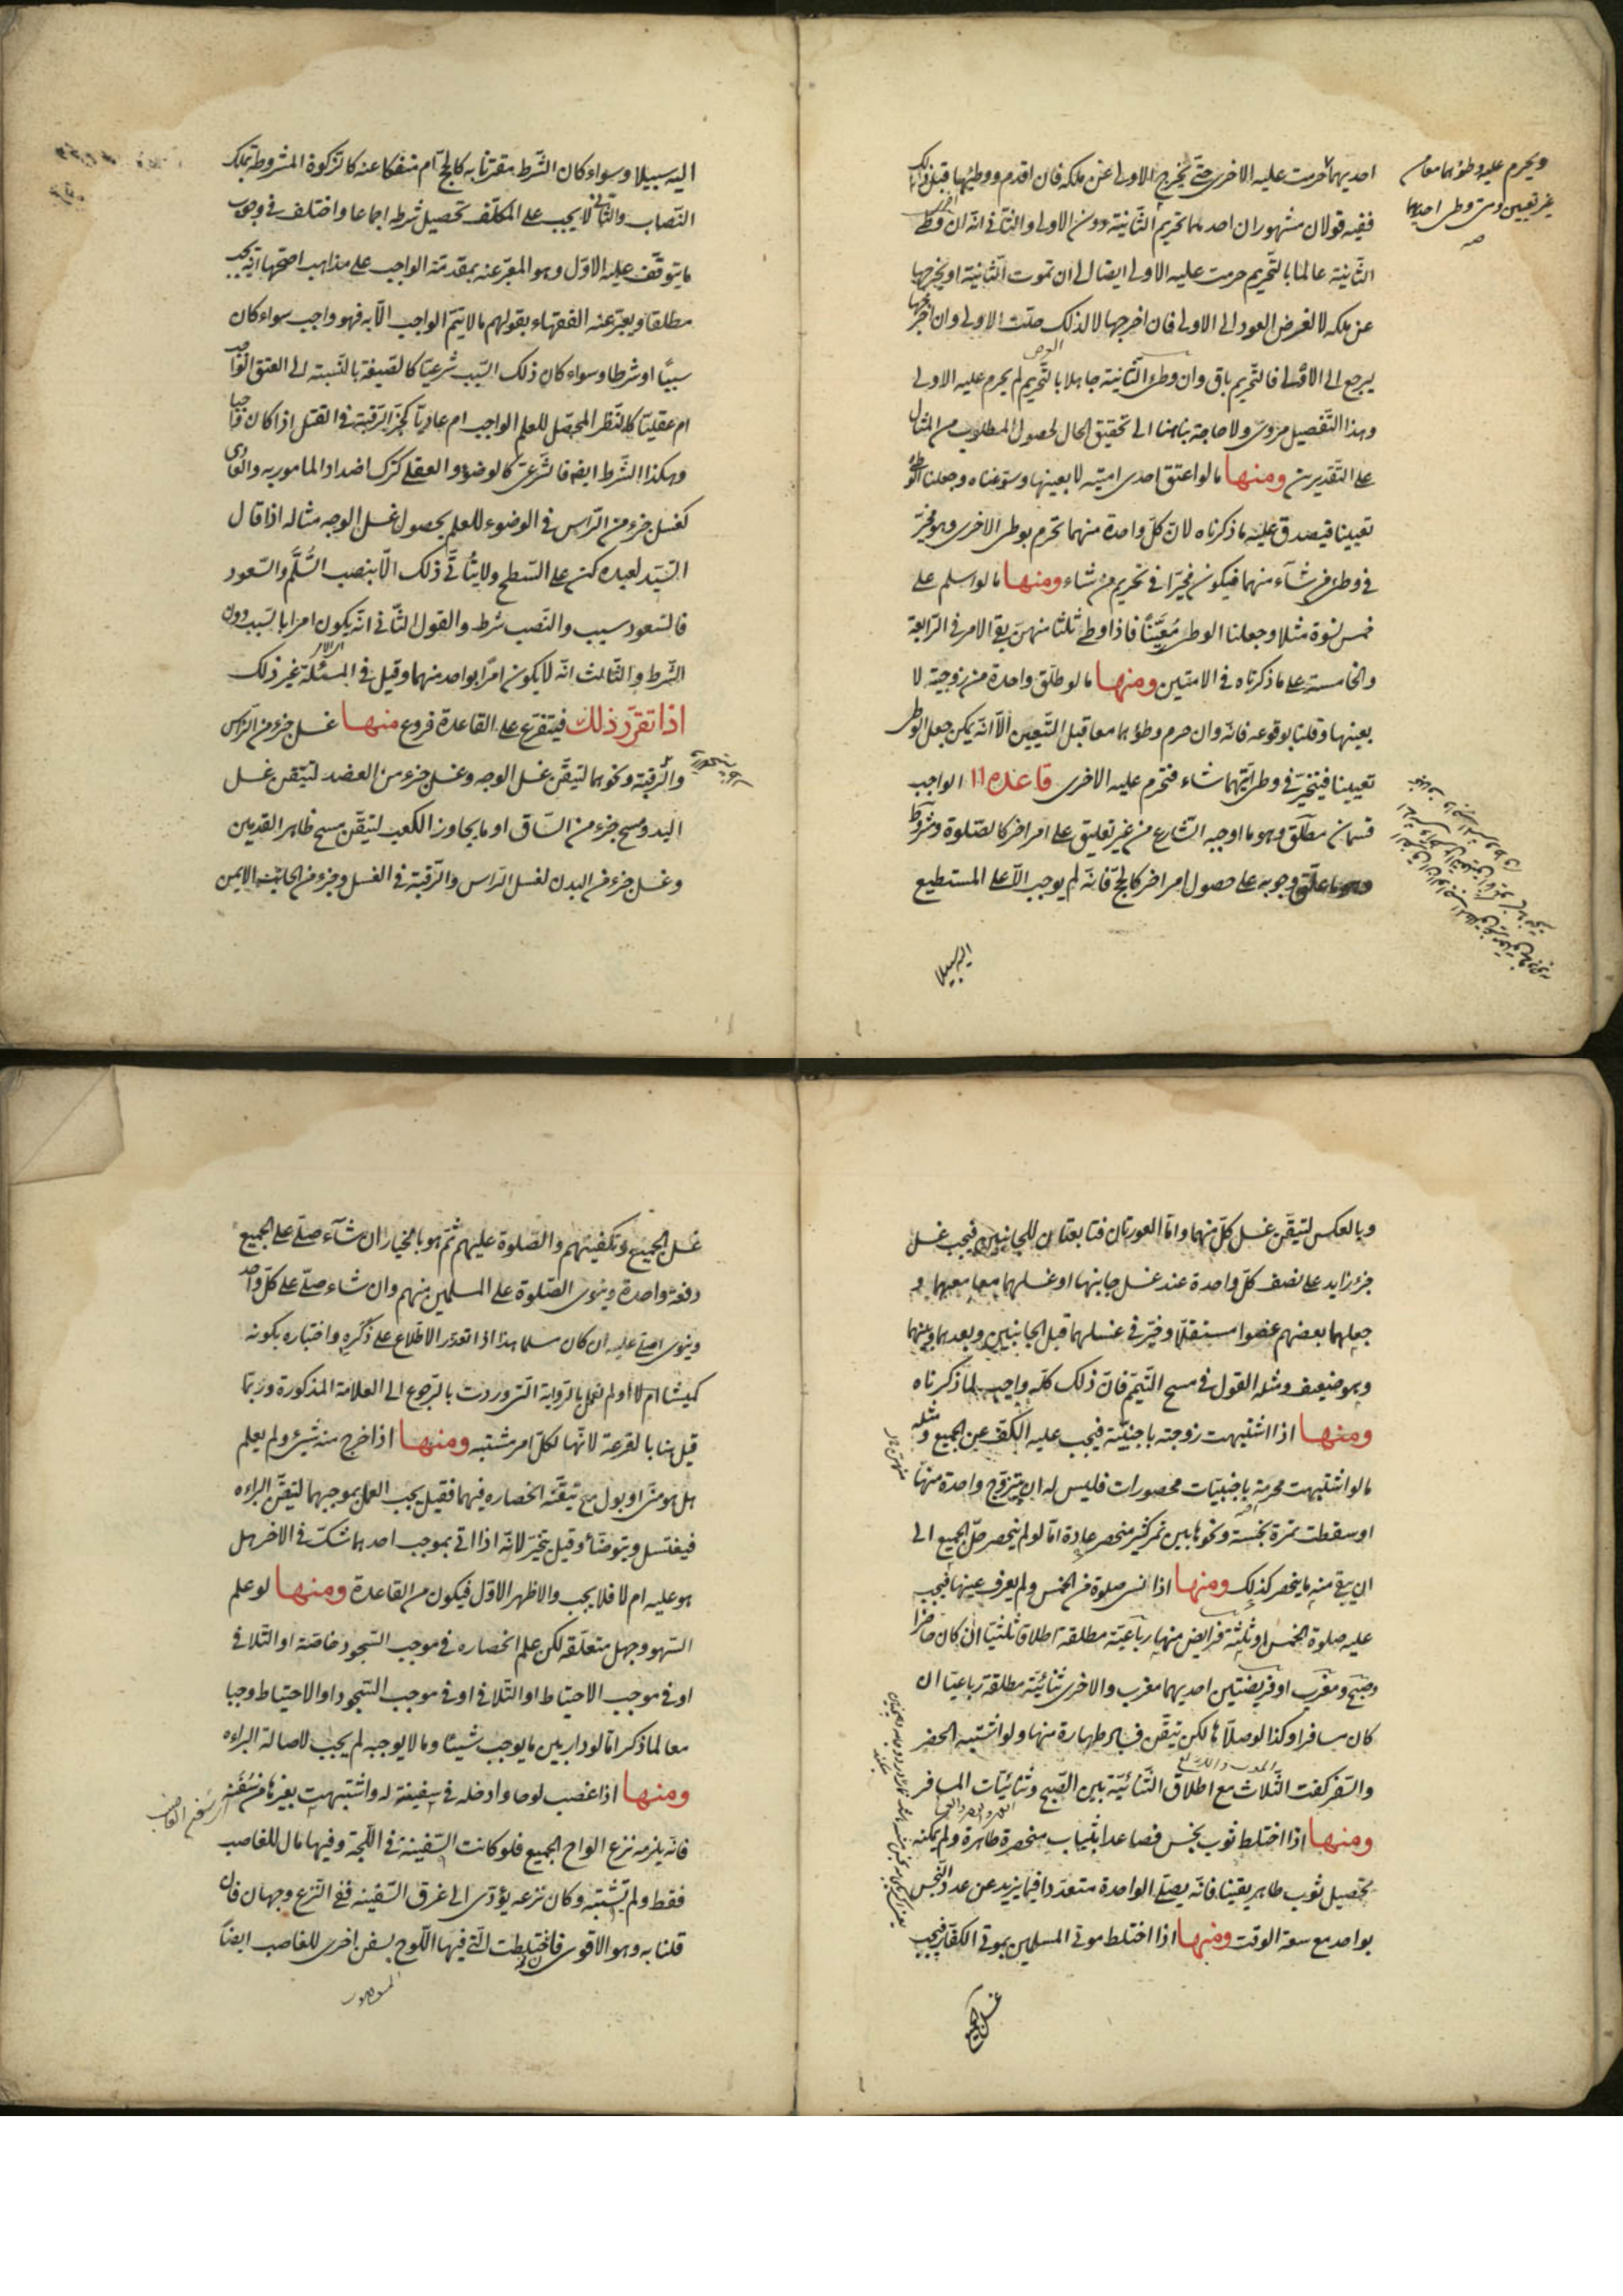 احديهما حرمت عليه الاخرى حتى يخرج الاولى عن ملكه فان اقدم ووطئها قبل ذلك
ففيه قولان مشهوران احدهما تحريم الثانية دون الاولى والثانى انه ان وطئ
الثانية عالما بالتحريم حرمت عليه الاولى ايضا الى ان تموت الثانية او يخرجها
عن ملكه لا لغرض العود الى الاولى فان اخرجها لا لذلك حلت الاولى وان اخرجها
ليرجع الى الاولى فالتحريم باق وان وطئ الثانية جاهلا بالتحريم لم يحرم عليه الاولى
وهذا التفصيل مروى ولا حاجة بنا هنا الى تحقيق الحال لحصول المطلوب من المثال
على التقديرين ومنها ما لو اعتق احدى امتيه لا بعينها وسوغناه وجعلنا الوطئ
تعيينا فيصدق عليه ما ذكرناه لان كل واحدة منهما تحرم بوطى الاخرى وهو مخير
فى وطئ من شاء منهما فيكون مخيرا فى تحريم من شاء ومنها ما لو اسلم على
خمس نسوة مثلا وجعلنا الوطى معينا فاذا وطئ ثلثا منهن بقى الامر فى الرابعة
والخامسة على ما ذكرناه فى الامتين ومنها ما لو طلق واحدة من زوجتيه لا
بعينها وقلنا بوقوعه فانه وان حرم وطؤهما معا قبل التعيين الا انه يمكن جعل الوطى
تعيينا فيتخير فى وطى ايتهما شاء فتحرم عليه الاخرى قاعده ١١ الواجب
قسمان مطلق وهو ما اوجبه الشارع من غير تعليق على امر اخر كالصلوة ومشروط
وهو ما علق وجوبه على حصول امر اخر كالحج فانه لم يوجب الا على المستطيع
اليه سبيلا
ويحرم عليه وطؤهما معا من
غير تعيين ومتى وطى احديهما
صح
اليه سبيلا وسواء كان الشرط مقترنا به كالحج ام منفكا عنه كالزكوة المشروطة بملك
النصاب والثانى لا يجب على المكلف تحصيل شرطه اجماعا واختلف فى وجوب
ما يتوقف عليه الاول وهو المعبر عنه بمقدمة الواجب على مذاهب اصحها انه يجب
مطلقا ويعبر عنه الفقهاء بقولهم ما لا يتم الواجب الا به فهو واجب سواء كان
سببا او شرطا وسواء كان ذلك السبب شرعيا كالصيغة بالنسبة الى العتق الواجب
ام عقليا كالنظر المحصل للعلم الواجب ام عاديا كحز الرقبة فى القتل اذا كان واجبا
وهكذا الشرط ايضا فالشرعى كالوضوء والعقلى كترك اضداد المامور به والعادى
كغسل جزء من الراس فى الوضوء للعلم بحصول غسل الوجه مثاله اذا قال
السيد لعبده كن على السطح ولا يتأتى ذلك الا بنصب السلم والصعود
فالصعود سبب والنصب شرط والقول الثانى انه يكون امرا بالسبب دون
الشرط والثالث انه لا يكون امرا بواحد منهما وقيل فى المسئلة غير ذلك
اذا تقرر ذلك فيتفرع على القاعدة فروع منها غسل جزء من الراس
والرقبة ونحوهما ليتيقن غسل الوجه وغسل جزء من العضد لتيقن غسل
اليد ومسح جزء من الساق او ما يجاوز الكعب ليتيقن مسح ظاهر القدمين
وغسل جزء من البدن لغسل الراس والرقبة فى الغسل وجزء من الجانب الايمن
وبالعكس لتيقن غسل كل منهما واما العورتان فتابعتان للجانبين فيجب غسل
جزء زايد على نصف كل واحدة عند غسل جانبها او غسلهما معا معهما و
جعلهما بعضهم عضوا مستقلا وخير فى غسلهما قبل الجانبين وبعدهما وبينهما
وهو ضعيف ومثله القول فى مسح التيمم فان ذلك كله واجب لما ذكرناه
ومنها اذا اشتبهت زوجته باجنبية فيجب عليه الكف عن الجميع ومثله
ما لو اشتبهت محرمة باجنبيات محصورات فليس له ان يتزوج واحدة منها
او سقطت تمرة نجسة ونحوها بين تمر كثير منحصر عادة اما لو لم ينحصر حل الجميع الى
ان يبقى منه ما ينحصر كذلك ومنها اذا نسى صلوة من الخمس ولم يعرف عينها فيجب
عليه صلوة الخمس او ثلثة فرايض منها رباعية مطلقة اطلاقا ثلثيا ان كان حاضرا
وصبح ومغرب او فريضتين احديهما مغرب والاخرى ثنائية مطلقة رباعيا ان
كان مسافرا وكذا لو صلاها لكن تيقن فساد طهارة منها ولو اشتبه الحضر
والسفر كفت الثلاث مع اطلاق الثنائية بين الصبح وثنائيات المسافر
ومنها اذا اختلط ثوب نجس فصاعدا بثياب منحصرة طاهرة ولم يمكنه
تحصيل ثوب طاهر يقينا فانه يصلى الواحدة متعددا فيما يزيد عن عدد النجس
بواحد مع سعة الوقت ومنها اذا اختلط موتى المسلمين بموتى الكفار فيجب
غسل الجميع
غسل الجميع وتكفينهم والصلوة عليهم ثم هو بالخيار ان شاء صلى على الجميع
دفعة واحدة وينوى الصلوة على المسلمين منهم وان شاء صلى على كل واحد
وينوى اصلى عليه ان كان مسلما هذا اذا تعذر الاطلاع على ذكره واختباره بكونه
كميشا ام لا او لم نعمل بالرواية التى وردت بالرجوع الى العلامة المذكورة وربما
قيل هنا بالقرعة لانها لكل امر مشتبه ومنها اذا خرج منه شىء ولم يعلم
هل هو منى او بول مع تيقنه انحصاره فيهما فقيل يجب العمل بموجبهما لتيقن البراءه
فيغتسل ويتوضأ وقيل يتخير لانه اذا اتى بموجب احدهما شك فى الاخر هل
هو عليه ام لا فلا يجب والاظهر الاول فيكون من القاعدة ومنها لو علم
السهو وجهل متعلقه لكن علم انحصاره فى موجب السجود خاصة او التلافى
او فى موجب الاحتياط او التلافى او فى موجب السجود او الاحتياط وجبا
معا لما ذكر اما لو دار بين ما يوجب شيئا وما لا يوجبه لم يجب لاصالة البراءه
ومنها اذا غصب لوحا وادخله فى سفينة له واشتبهت بغيرها من سفنه
فانه يلزمه نزع الواح الجميع فلو كانت السفينة فى اللجة وفيها مال للغاصب
فقط ولم تشتبه وكان نزعه يؤدى الى غرق السفينه ففى النزع وجهان فان
قلنا به وهو الاقوى فاختلطت التى فيها اللوح بسفن اخرى للغاصب ايضا